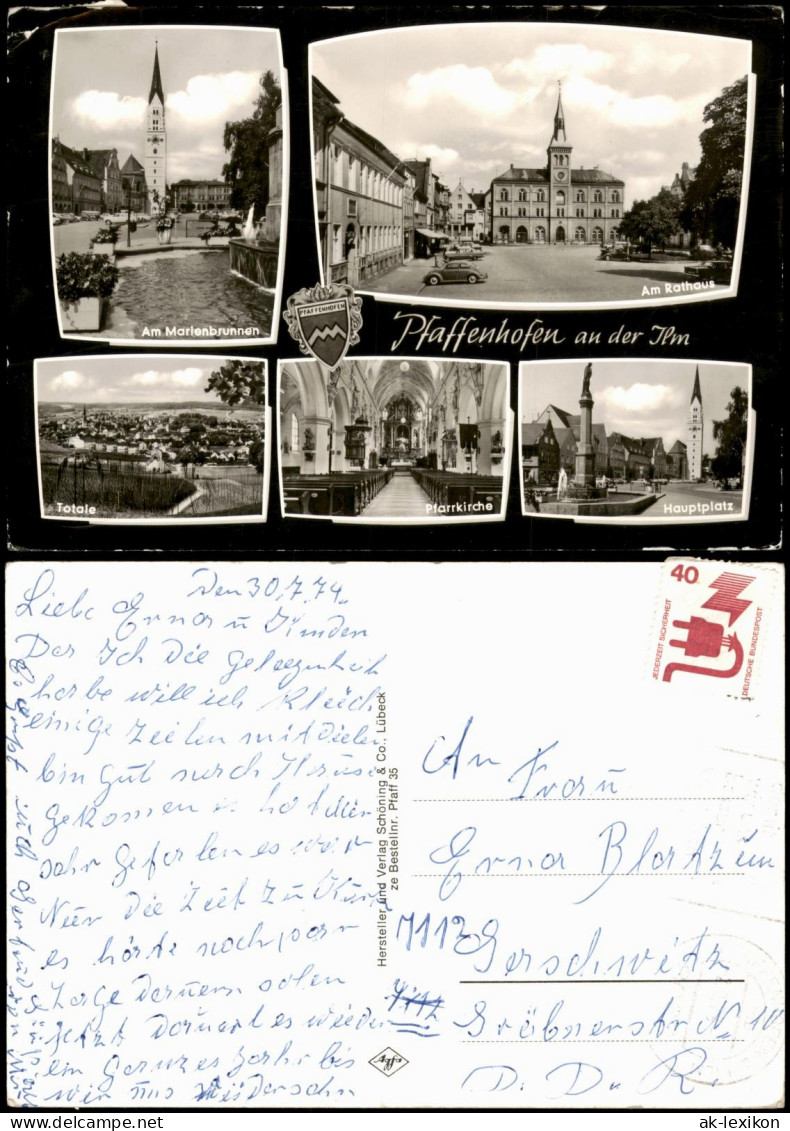 Am Marienbrunnen
Am Rathaus
PFAFFENHOFEN
Pfaffenhofen an der Ilm
Totale
Pfarrkirche
Hauptplatz
Den 30.7.74.
Liebe Erna u Kinder
Da Ich Die gelegenheit
habe will ich Kleich
einige Zeilen mitdeilen
bin gut nach Hause
gekomen es hat mir
sehr gefalen es war
Nur Die Zeit zu Kurz
es hätte noch par
Tage dauern solen
jetzt dauert es wieder
ein ganzes Jahr bis
wir uns Widersehn
Hersteller und Verlag Schöning & Co., Lübeck
ze Bestellnr. Pfaff 35
Agfa
40
JEDERZEIT SICHERHEIT
DEUTSCHE BUNDESPOST
An Frau
Erna Blatzum
7113 Gerschwitz
Gröbnerstr No 10
D. D. R.